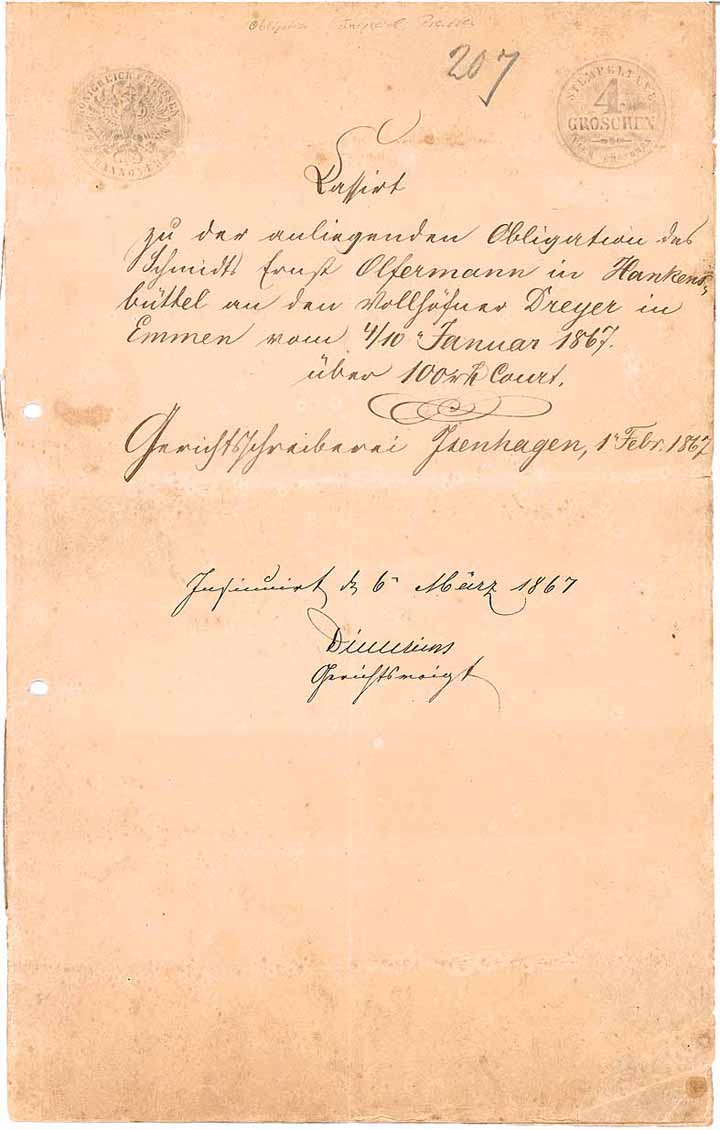 Obligation Königreich Preussen
207
KÖNIGREICH PREUSSEN
HANNOVER
STEMPEL
4
GROSCHEN
Cassirt
zu der anliegenden Obligation des
Schmidts Ernst Olfermann in Hankens-
büttel an den Vollhöfner Dreyer in
Emmen vom 4/10 Januar 1867.
über 100 rt Court.
Gerichtsschreiberei Isenhagen, 1 Febr. 1867
Insinuirt d 6 März 1867
Gerichtsvoigt